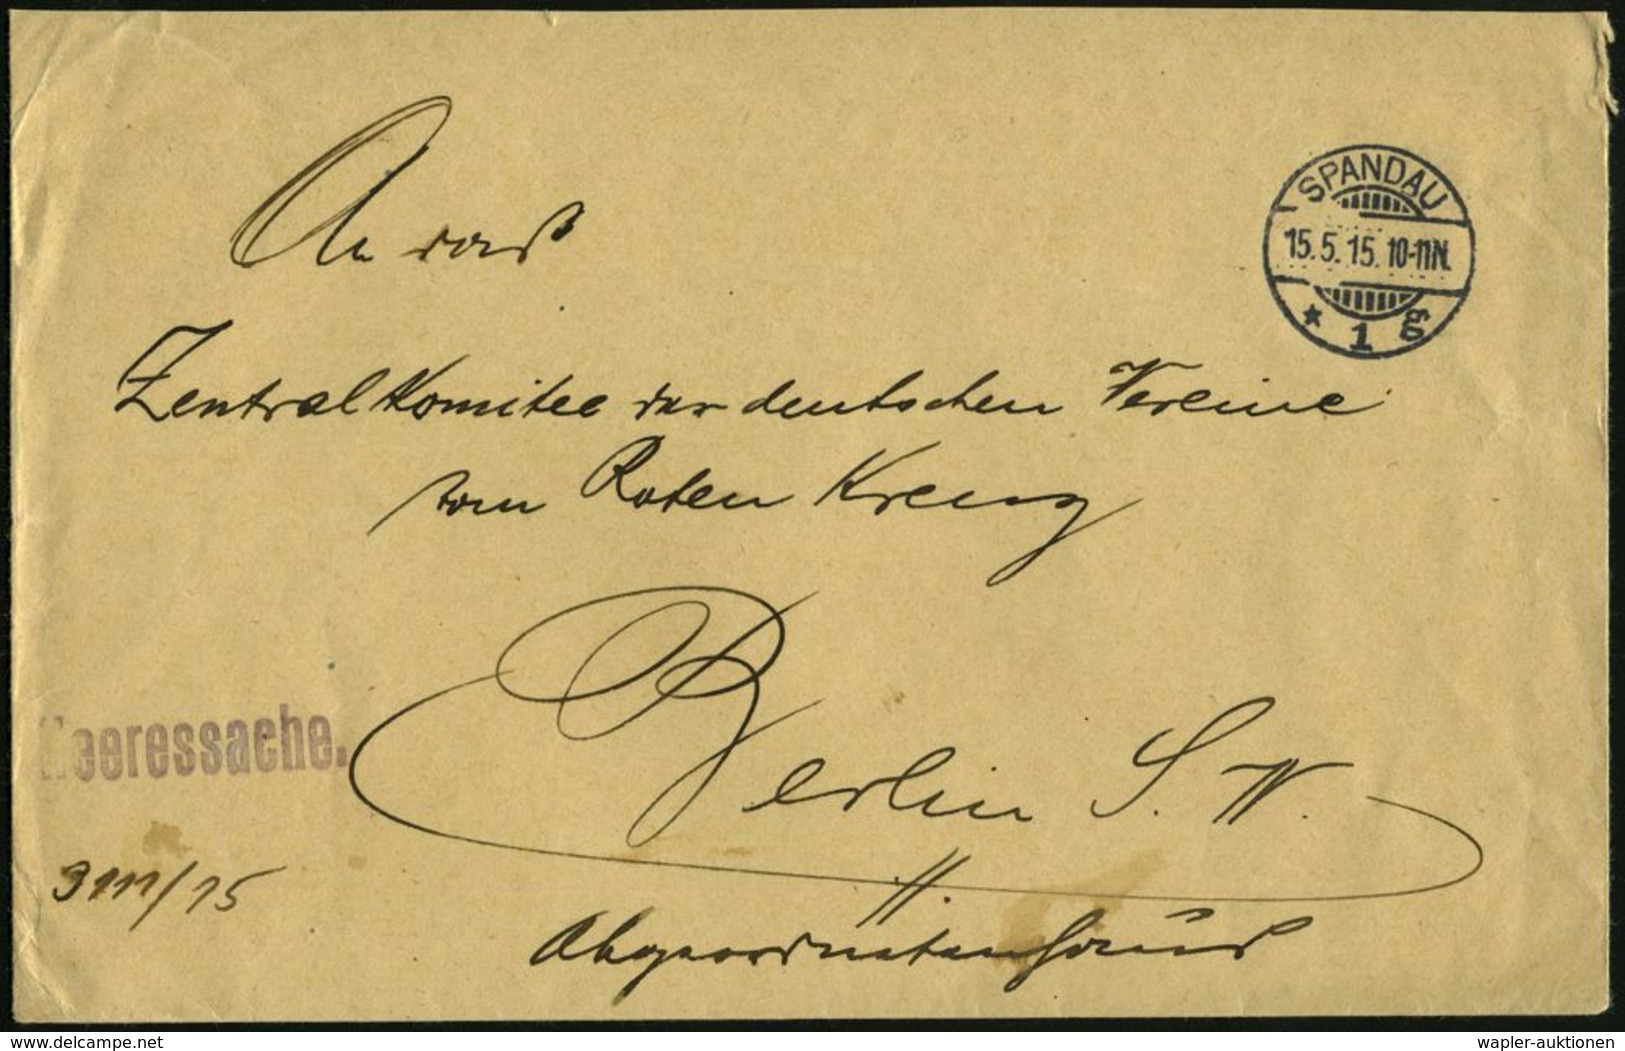 An das
SPANDAU
15.5.15. 10-11N.
* 1 g
Zentralkomitee der deutschen Vereine
vom Roten Kreuz
Heeressache.
Berlin S.W.
3111/15
11.
Abgeordnetenhaus
delcampe.net
wapler-auktionen